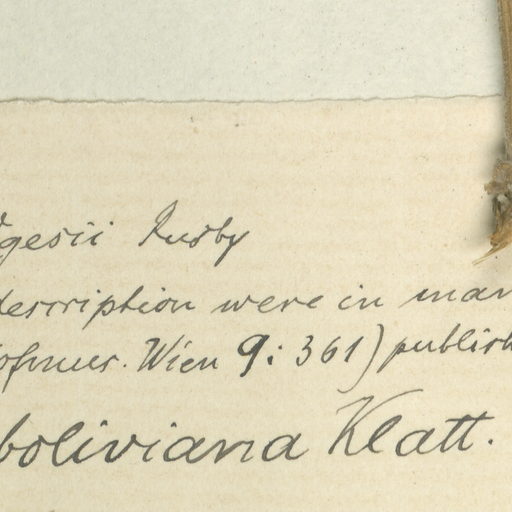 gesii Rusby
description were in man
ofmus. Wien 9: 361) publish
boliviana Klatt.